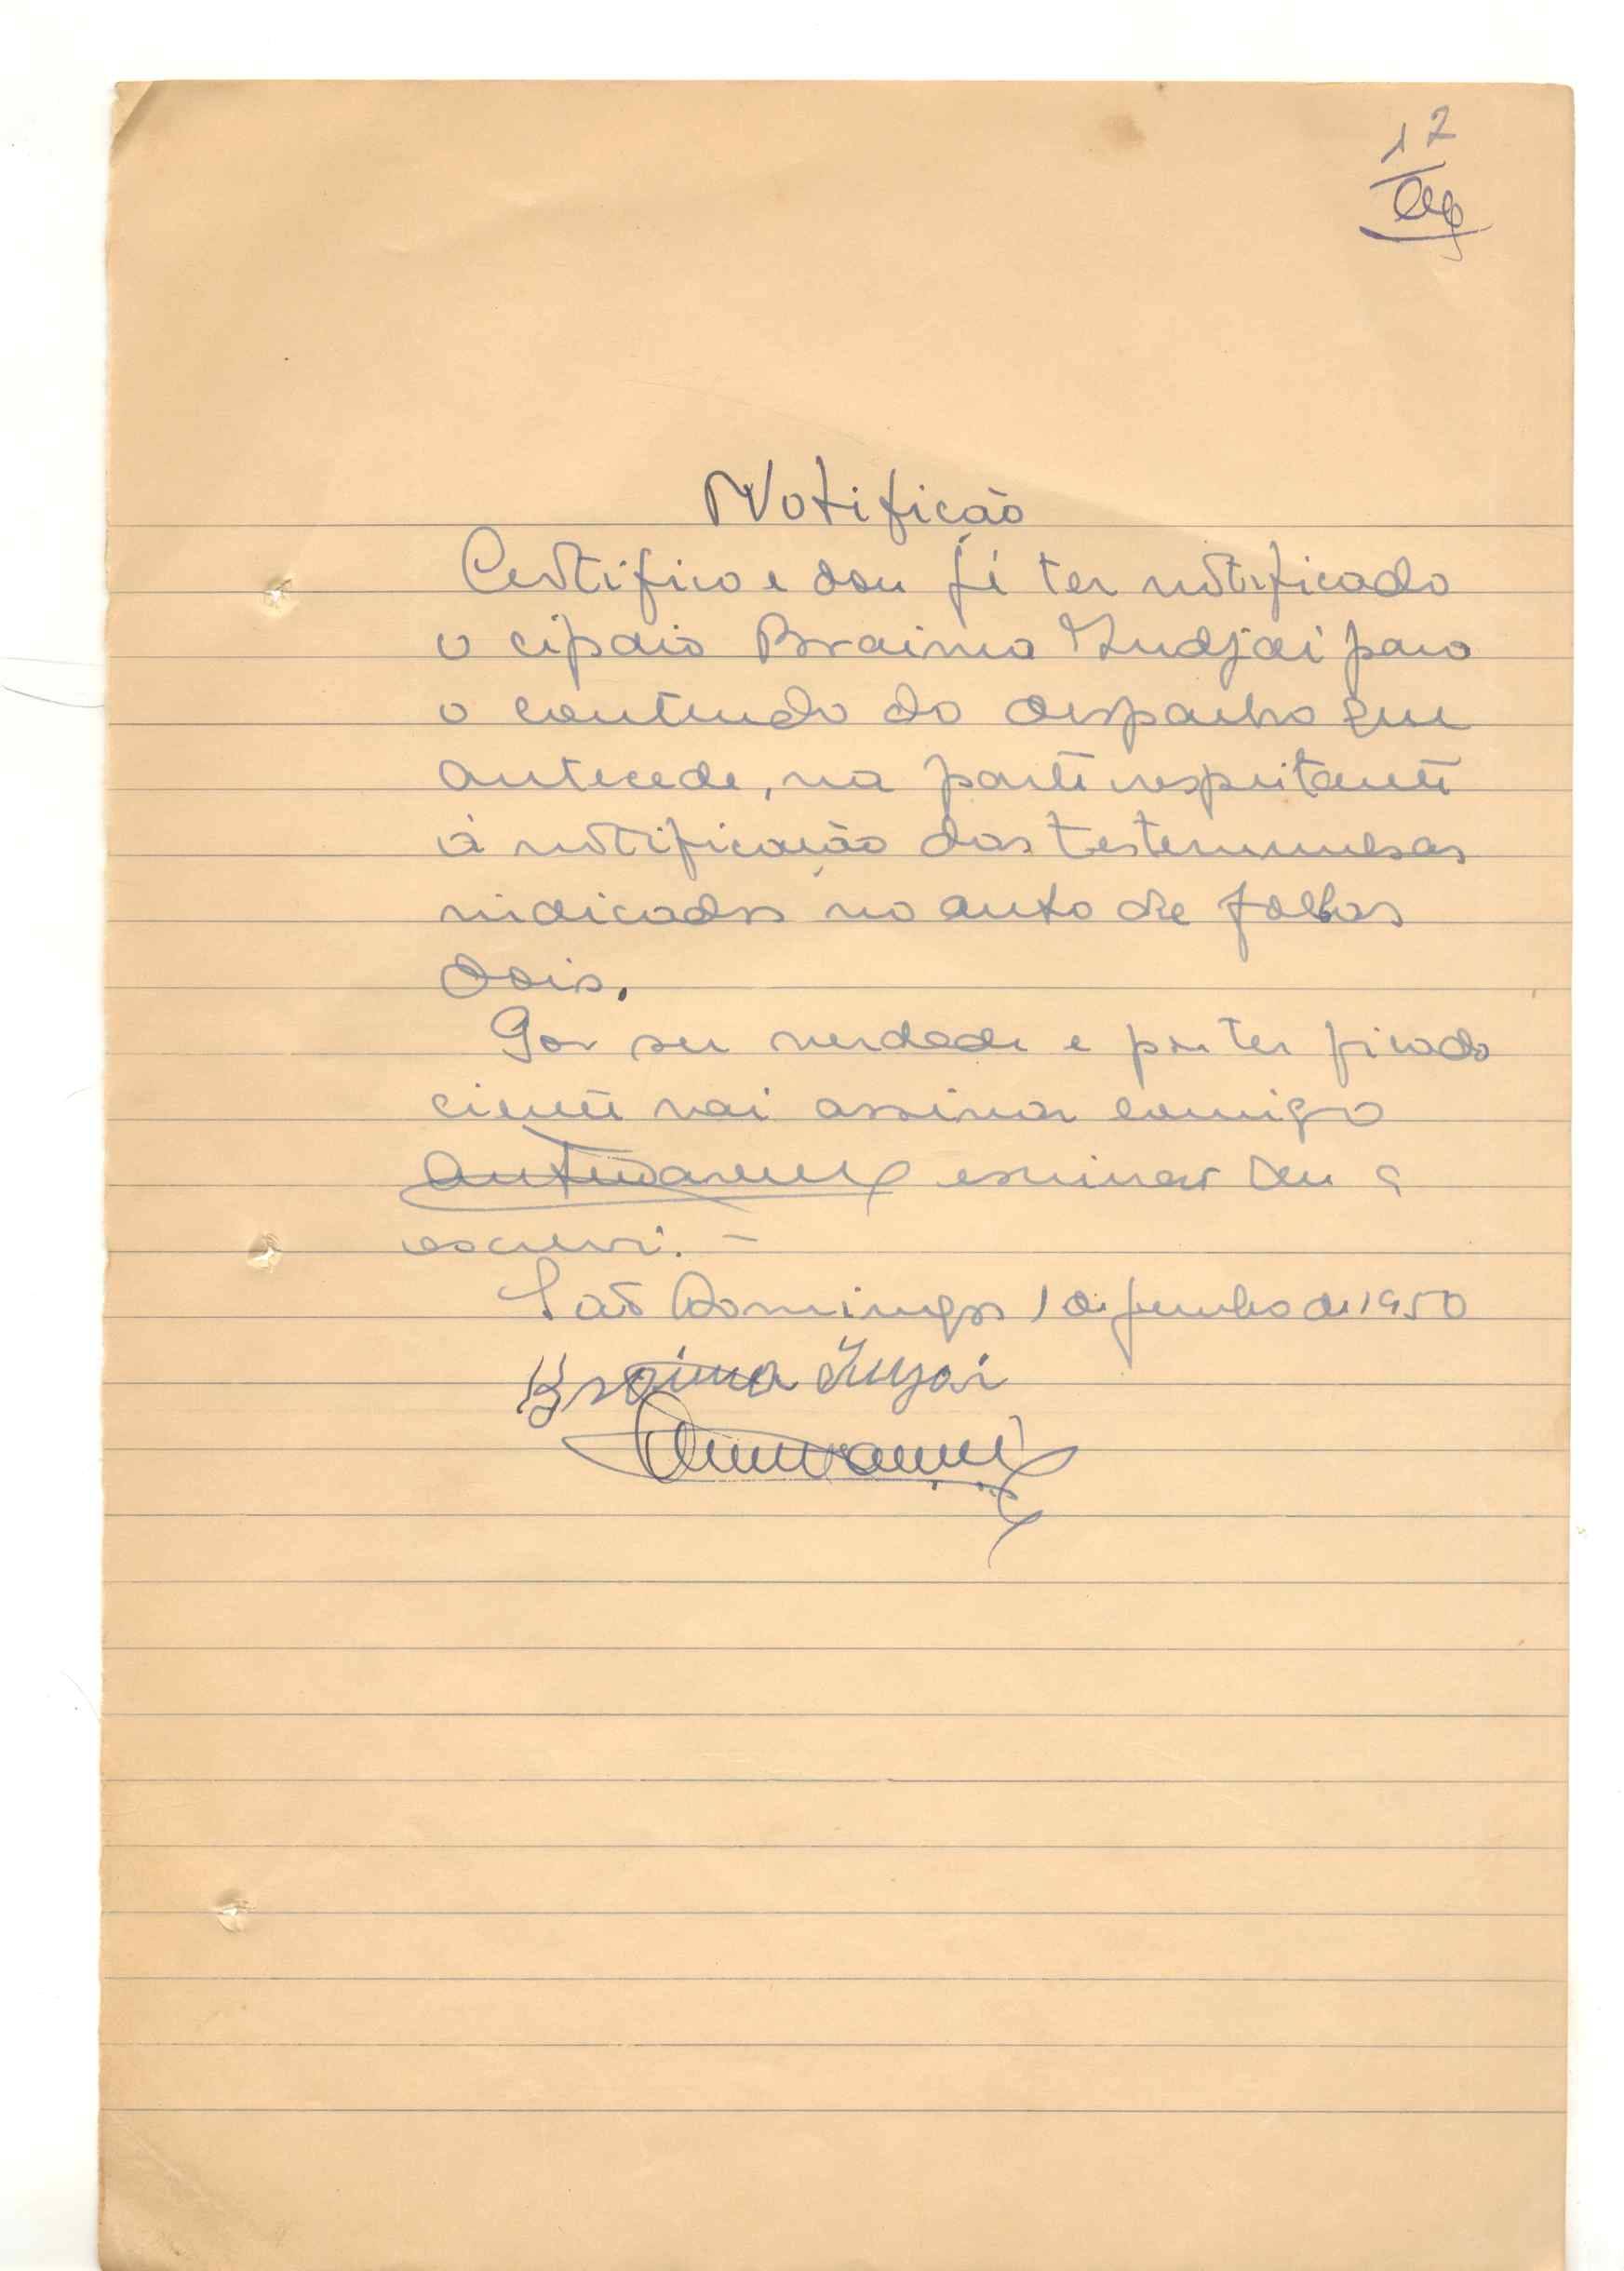 17
Notificação
Certifico e dou fé ter notificado
o cipaio Braima Indjai para
o conteudo do despacho que
antecede, na parte respeitante
à notificação das testemunhas
indicadas no auto de folhas
dois.
Por ser verdade e por ter ficado
ciente vai assinar comigo
escrivão que a
escrevi. -
São Domingos 1 de junho de 1950
Braima Injai